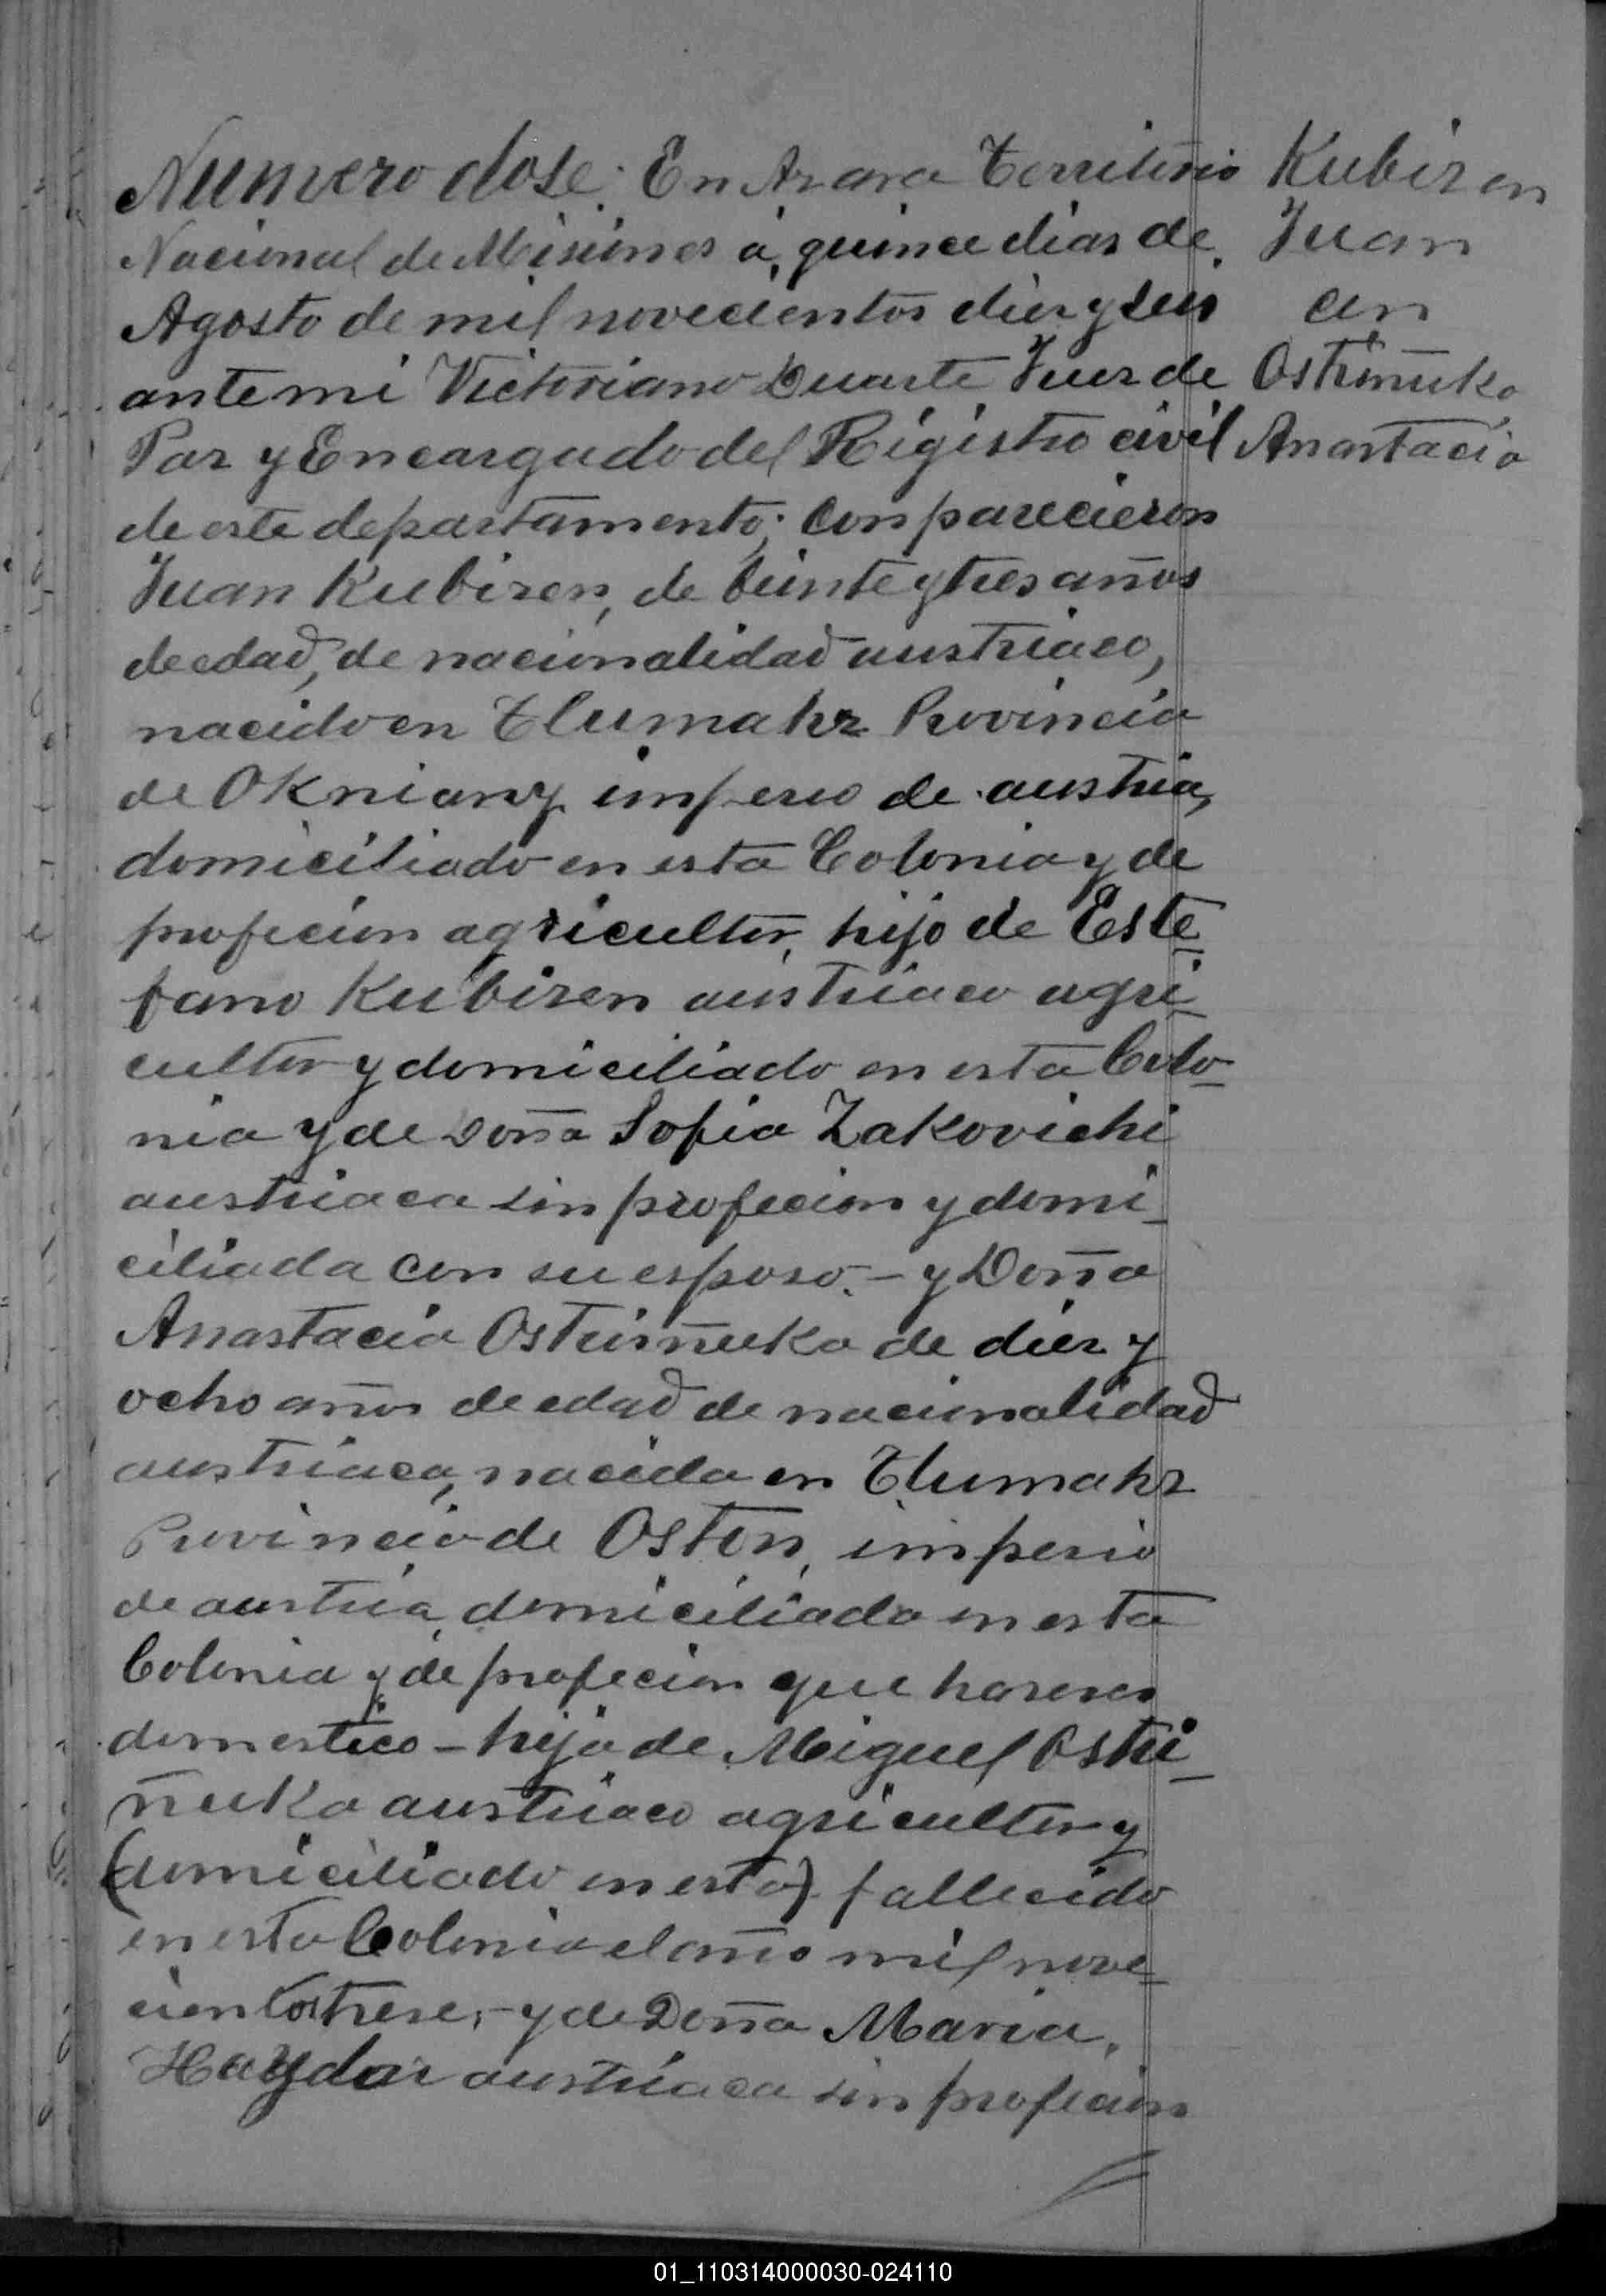 Numero dose. En Azara Territorio
Nacional de Misiones á quince dias de
Agosto de mil novecientos diez y seis
ante mi Victoriano Duarte Juez de
Paz y Encargado del Registro civil
de este departamento; Conparecieron
Juan Kubizen, de beinte y tres años
de edad, de nacionalidad austriaco,
nacido en Tlumahz Provincia
de Okniany imperio de austria,
domiciliado en esta Colonia y de
profecion agricultor, hijo de Este_
fano Kubizen austriaco agri_
cultor y domiciliado en esta Colo_
nia y de Doña Sofia Zakovichi
austriaca sin profecion y domi_
ciliada con su esposo.- y Doña
Anastacia Ostriñuka de diez y
ocho años de edad de nacionalidad
austriaca, nacida en Tlumahz
Provincia de Oston, imperio
de austria domiciliada en esta
Colonia y de profecion que haseres
domestico - hija de Miguel Ostri_
ñuka austriaco agricultor y
(domiciliado en esta) fallecido
en esta Colonia el año mil nove_
cientos trese,- y de Doña Maria,
Haydai austriaca sin profecion
Kubizen
Juan
con
Ostriñuka
Anastacia
01_110314000030-024110